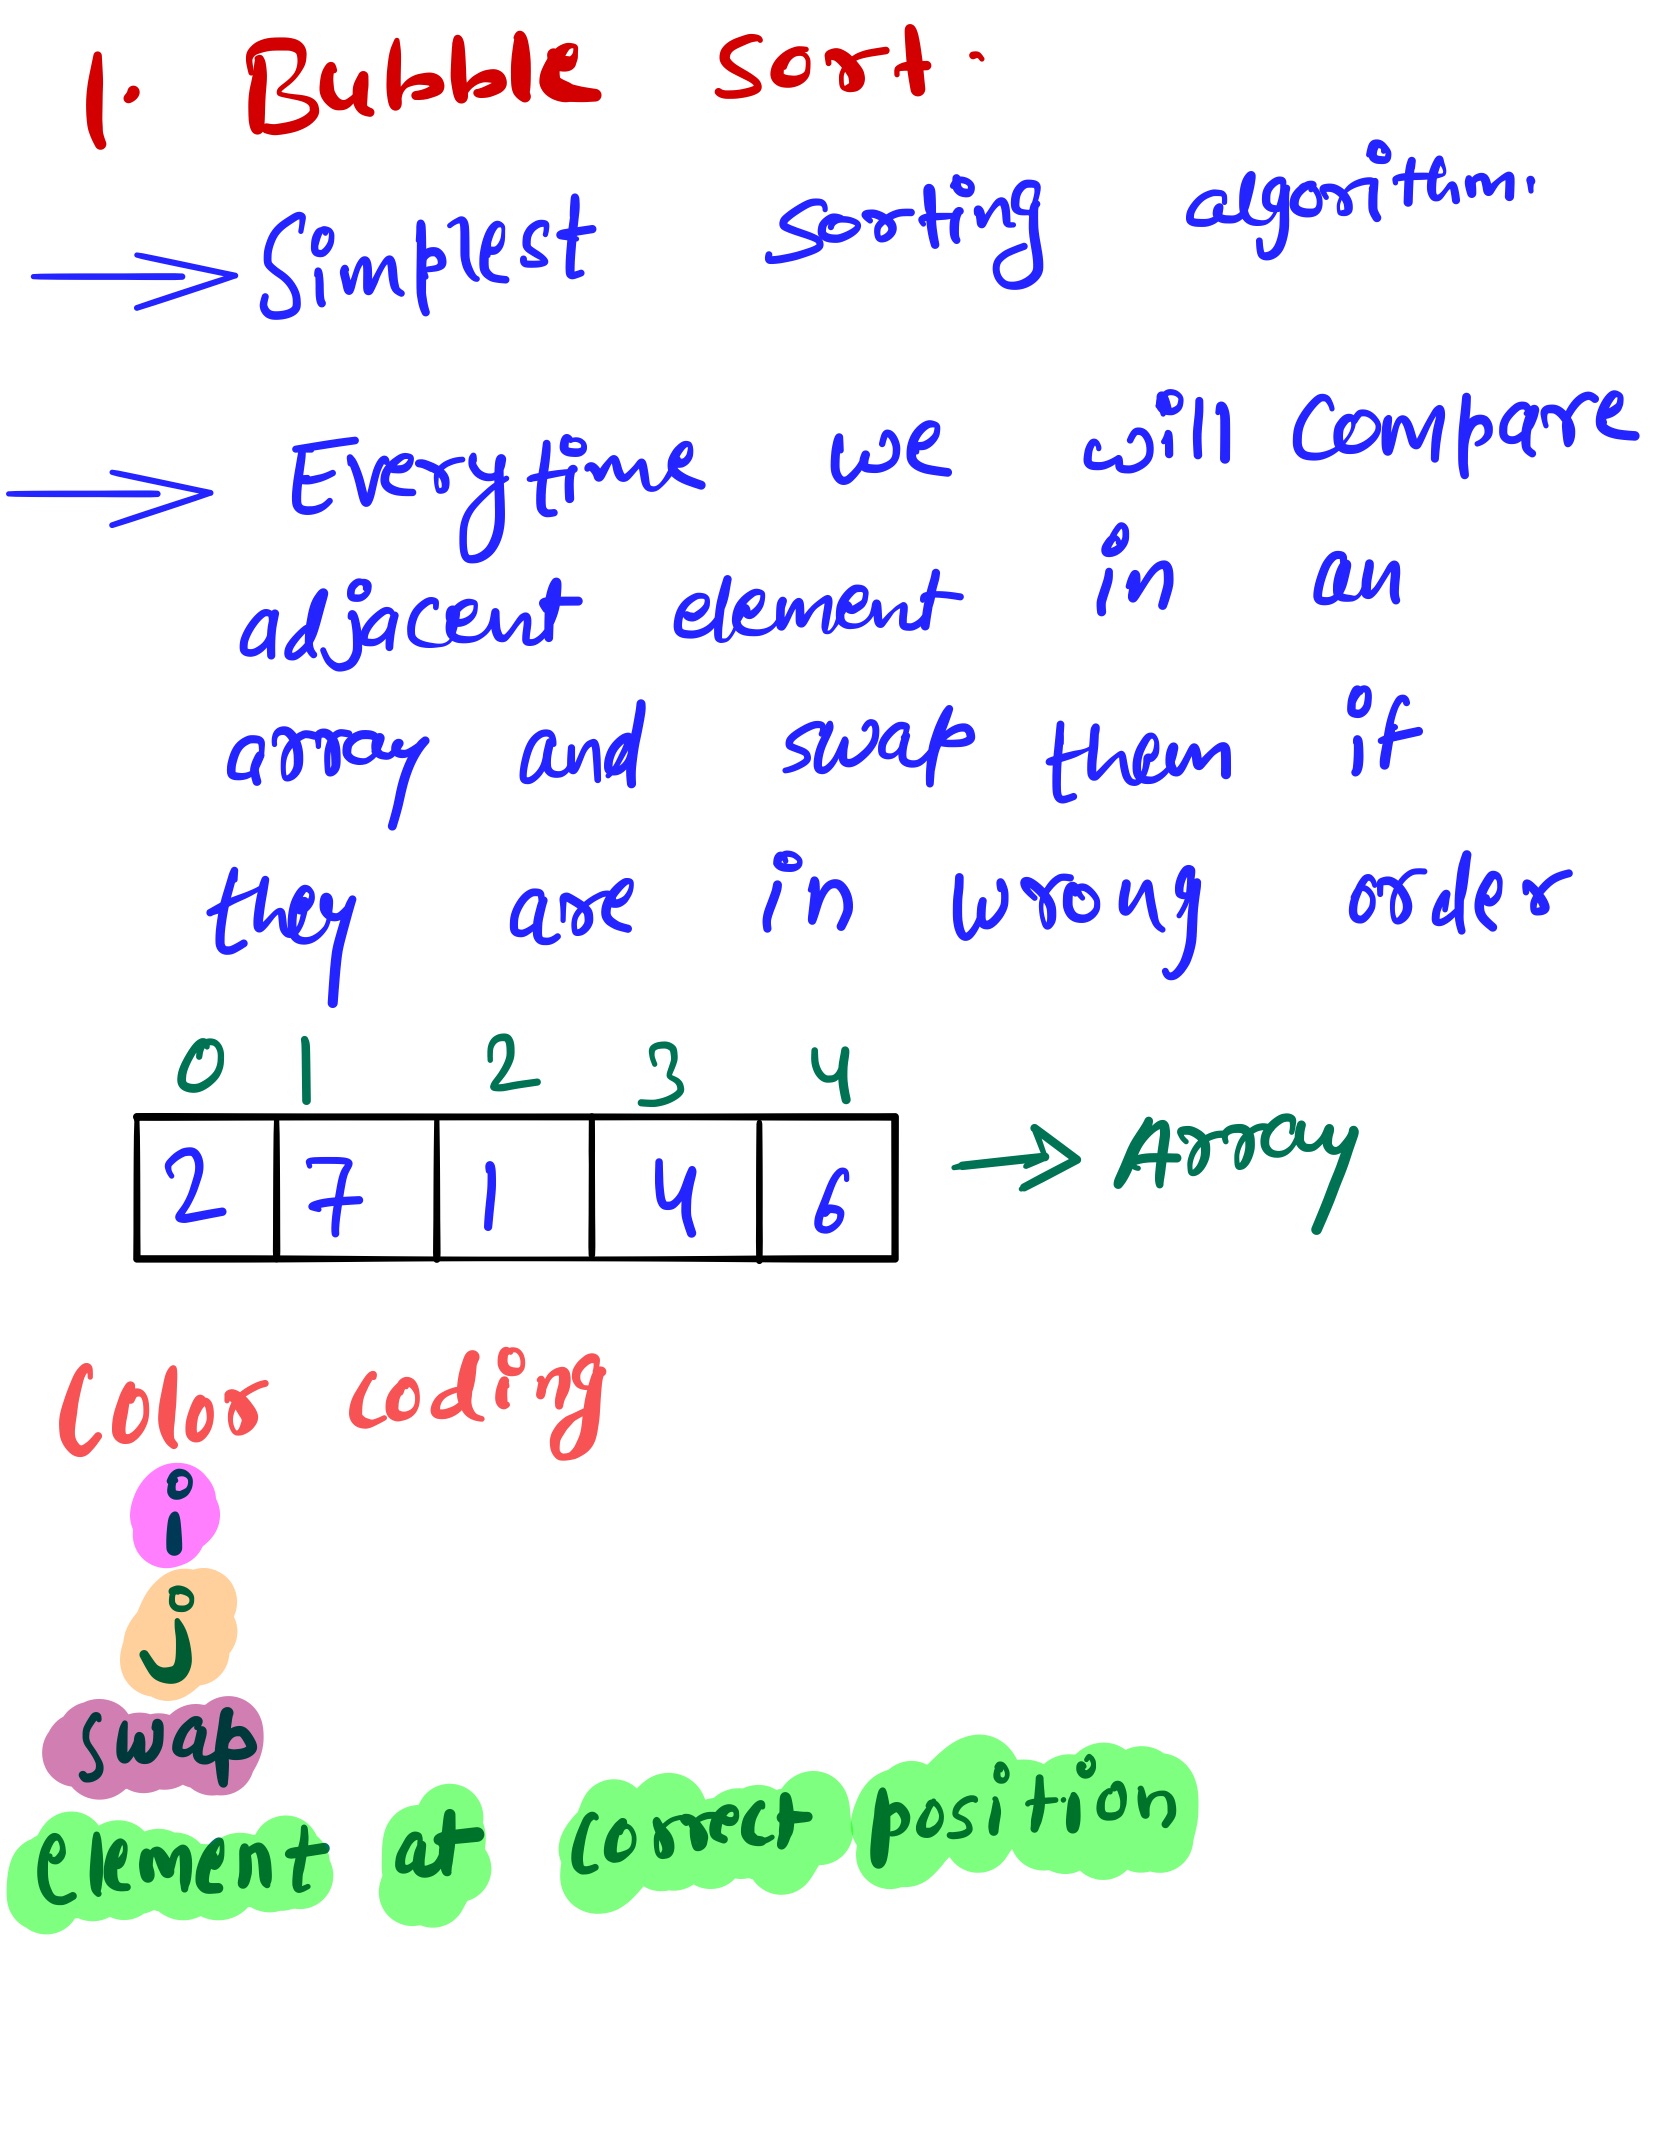 1. Bubble Sort.
⟹ Simplest sorting algorithm.
⟹ Every time we will compare
adjacent element in an
array and swap them if
they are in wrong order
0 1 2 3 4
2 7 1 4 6 → Array
Color coding
i
j
swap
Element at correct position